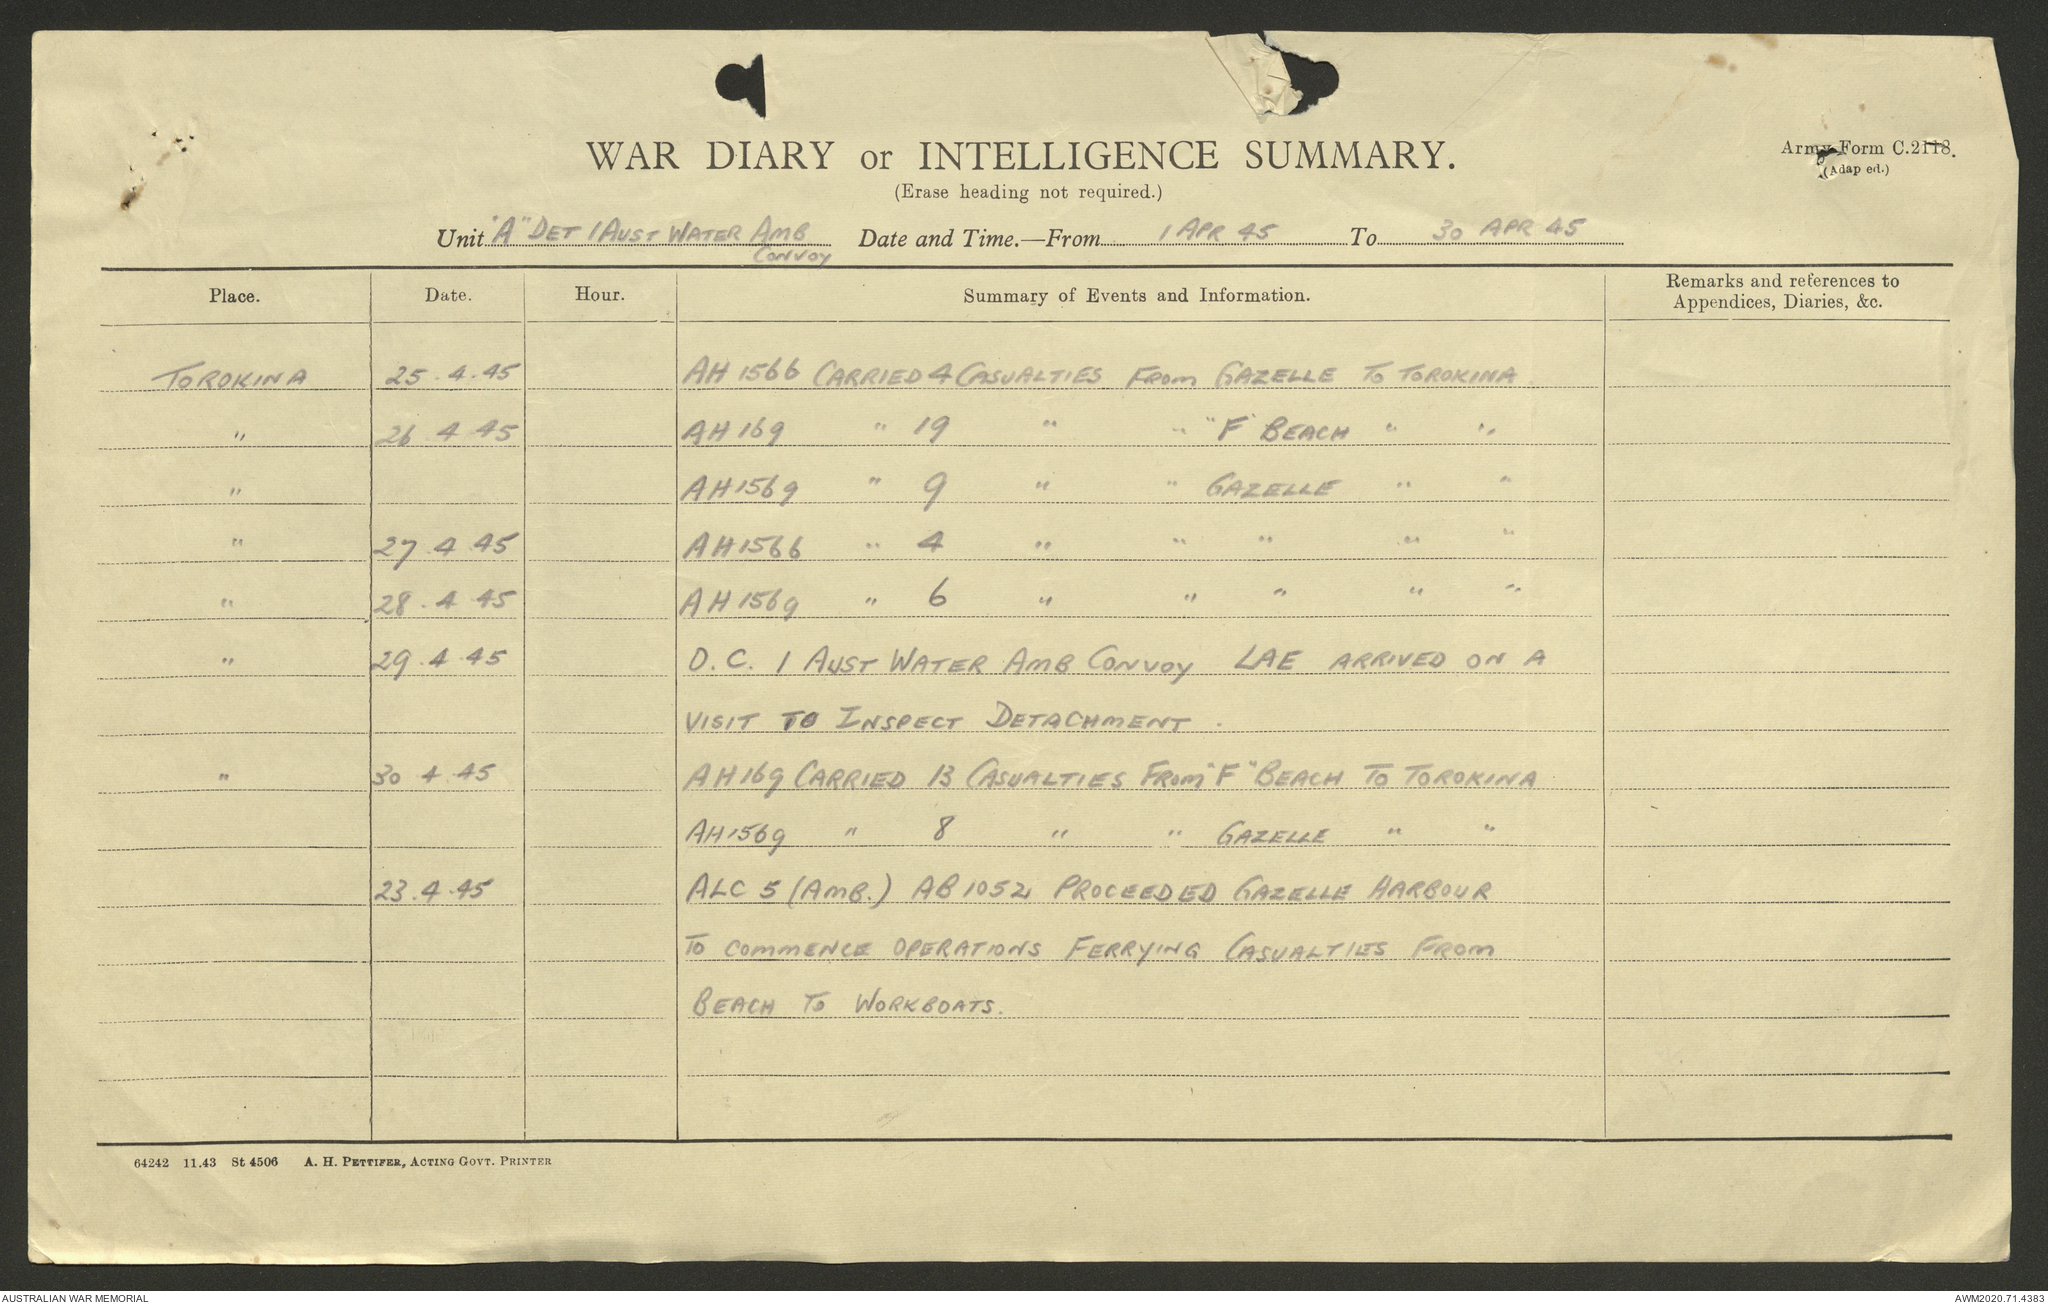 WAR DIARY or INTELLIGENCE SUMMARY.
Army Form C.2118.
(Erase heading not required.)
(Adap ed.)
Unit "A" DET 1 AUST WATER AMB CONVOY Date and Time.—From 1 APR 45 To 30 APR 45
Place. Date. Hour. Summary of Events and Information. Remarks and references to Appendices, Diaries, &c.
TOROKINA 25.4.45 AH 1566 CARRIED 4 CASUALTIES FROM GAZELLE TO TOROKINA
" 26.4.45 AH 169 " 19 " " "F" BEACH " "
" AH 1569 " 9 " " GAZELLE " "
" 27.4.45 AH 1566 " 4 " " " " "
" 28.4.45 AH 1569 " 6 " " " " "
" 29.4.45 O.C. 1 AUST WATER AMB CONVOY LAE ARRIVED ON A
VISIT TO INSPECT DETACHMENT.
" 30 4 45 AH 169 CARRIED 13 CASUALTIES FROM "F" BEACH TO TOROKINA
AH 1569 " 8 " " GAZELLE " "
23.4.45 ALC 5 (AMB.) AB 1052 PROCEEDED GAZELLE HARBOUR
TO COMMENCE OPERATIONS FERRYING CASUALTIES FROM
BEACH TO WORKBOATS.
64242 11.43 St 4506 A. H. PETTIFER, ACTING GOVT. PRINTER
AUSTRALIAN WAR MEMORIAL
AWM2020.71.4383